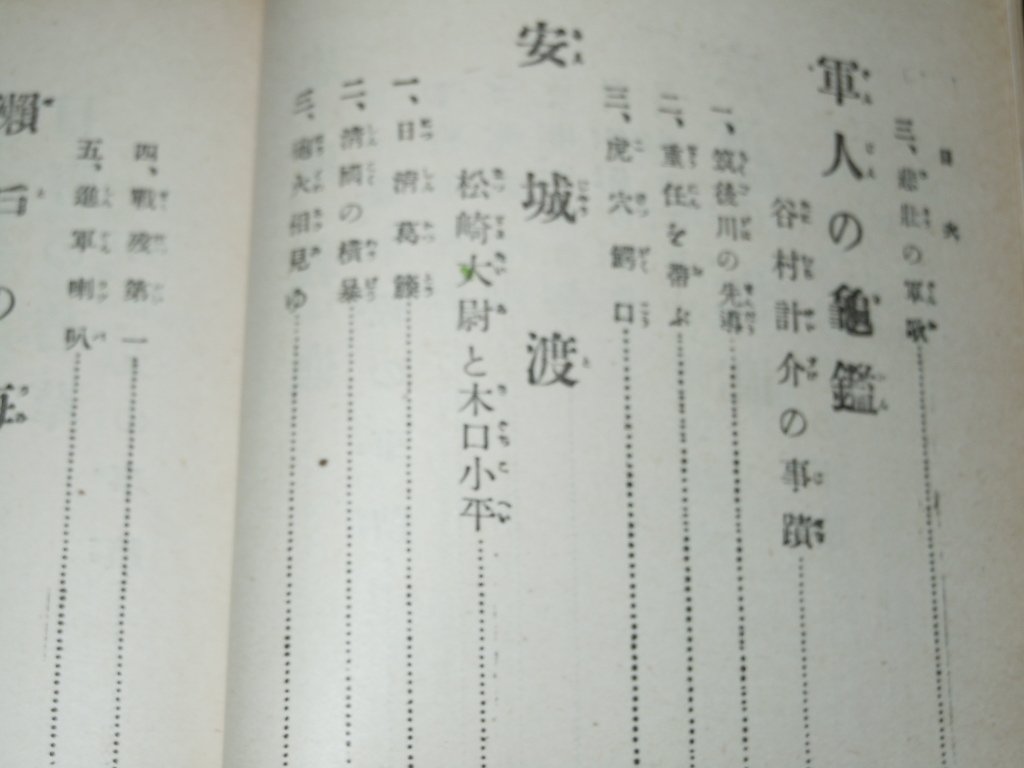 目次
三、悲壯の軍歌
軍人の龜鑑
谷村計介の事蹟
一、筑後川の先導
二、重任を帶ぶ
三、虎穴鰐口
安城渡
松崎大尉と木口小平
一、日淸葛藤
二、淸國の橫暴
三、砲火相見ゆ
四、戰歿第一
五、進軍喇叭
瀨戶の